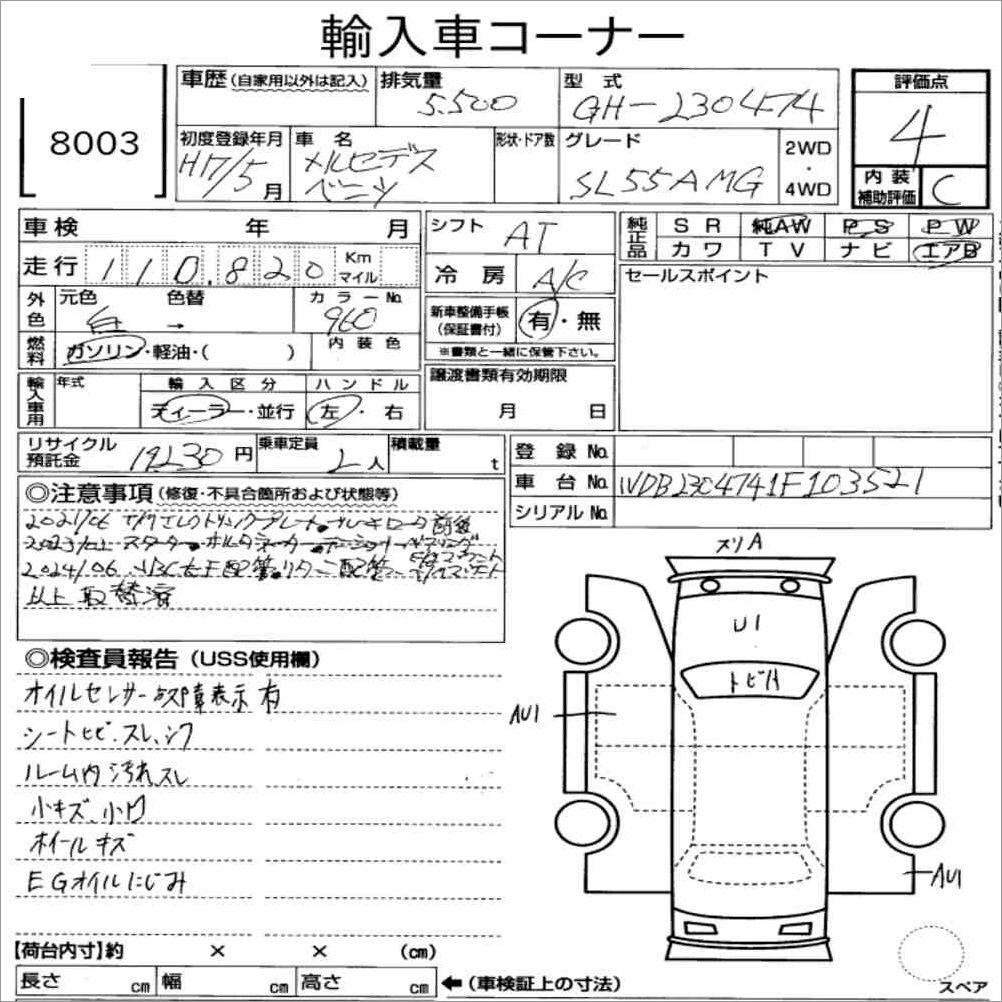 輸入車コーナー
8003
車歴 (自家用以外は記入)
排気量 5.500
型式 GH-230474
評価点 4
初度登録年月 H17/5月
車名 メルセデス ベンツ
形状・ドア数
グレード SL55AMG
2WD・4WD
内装補助評価 C
車検 年 月
シフト AT
純正品 SR 純AW PS PW
カワ TV ナビ エアB
走行 110.820 Km マイル
冷房 A/C
セールスポイント
外色 元色 白 → 色替 カラーNo. 960
新車整備手帳(保証書付) 有・無
※書類と一緒に保管下さい。
燃料 ガソリン・軽油・( )
内装色
譲渡書類有効期限
月 日
輸入車用 年式
輸入区分 ディーラー・並行
ハンドル 左・右
リサイクル預託金 円
乗車定員 2人
積載量 t
登録No.
車台No. WDB2304741F103521
シリアルNo.
◎注意事項 (修復・不具合箇所および状態等)
2021/06
スターター
2024/06
以上取替済
◎検査員報告 (USS使用欄)
オイルセンサー故障表示有
シートヒビ、スレ、シワ
ルーム内汚れスレ
小キズ、小凹
ホイールキズ
EGオイルにじみ
スリA
U1
トビA
AU1
AU1
【荷台内寸】約 × × (cm)
長さ cm 幅 cm 高さ cm ←(車検証上の寸法)
スペア